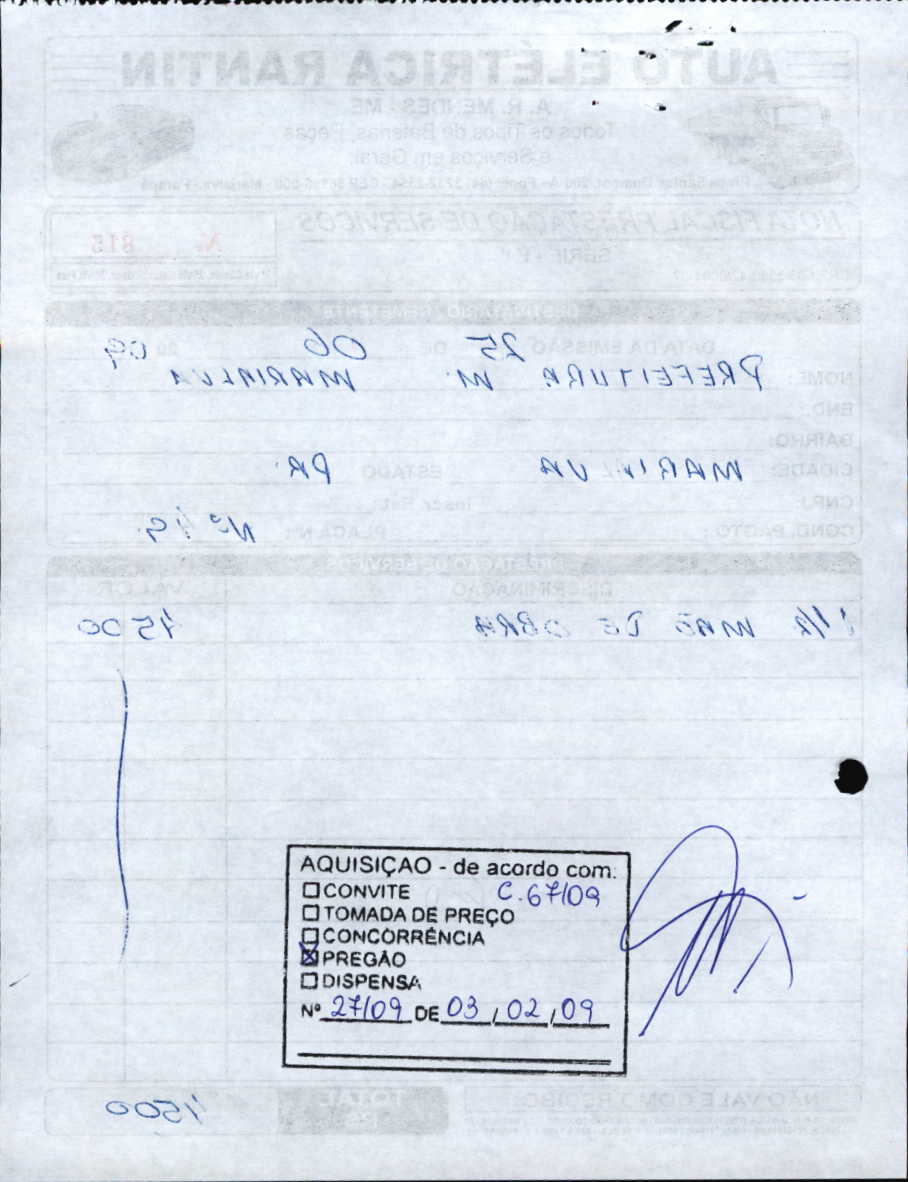 AUTO ELÉTRICA RANTIN
A. R. MENDES - ME
Todos os Tipos de Baterias, Peças
e Serviços em Geral
NOTA FISCAL PRESTAÇÃO DE SERVIÇOS
Nº 815
SÉRIE - F
DESTINATÁRIO / REMETENTE
DATA DA EMISSÃO 25 DE 06 20 09
NOME: PREFEITURA M. MARIALVA
END.:
BAIRRO:
CIDADE: MARIALVA ESTADO PA
CNPJ: Inscr. Est.:
COND. PAGTO.: PLACA Nº:
PRESTAÇÃO DE SERVIÇOS
DISCRIMINAÇÃO VALOR
MAO DE OBRA 4500
AQUISIÇÃO - de acordo com:
CONVITE C.67/09
TOMADA DE PREÇO
CONCORRÊNCIA
PREGÃO
DISPENSA
Nº 27/09 DE 03 / 02 / 09
NÃO VALE COMO RECIBO TOTAL 4500